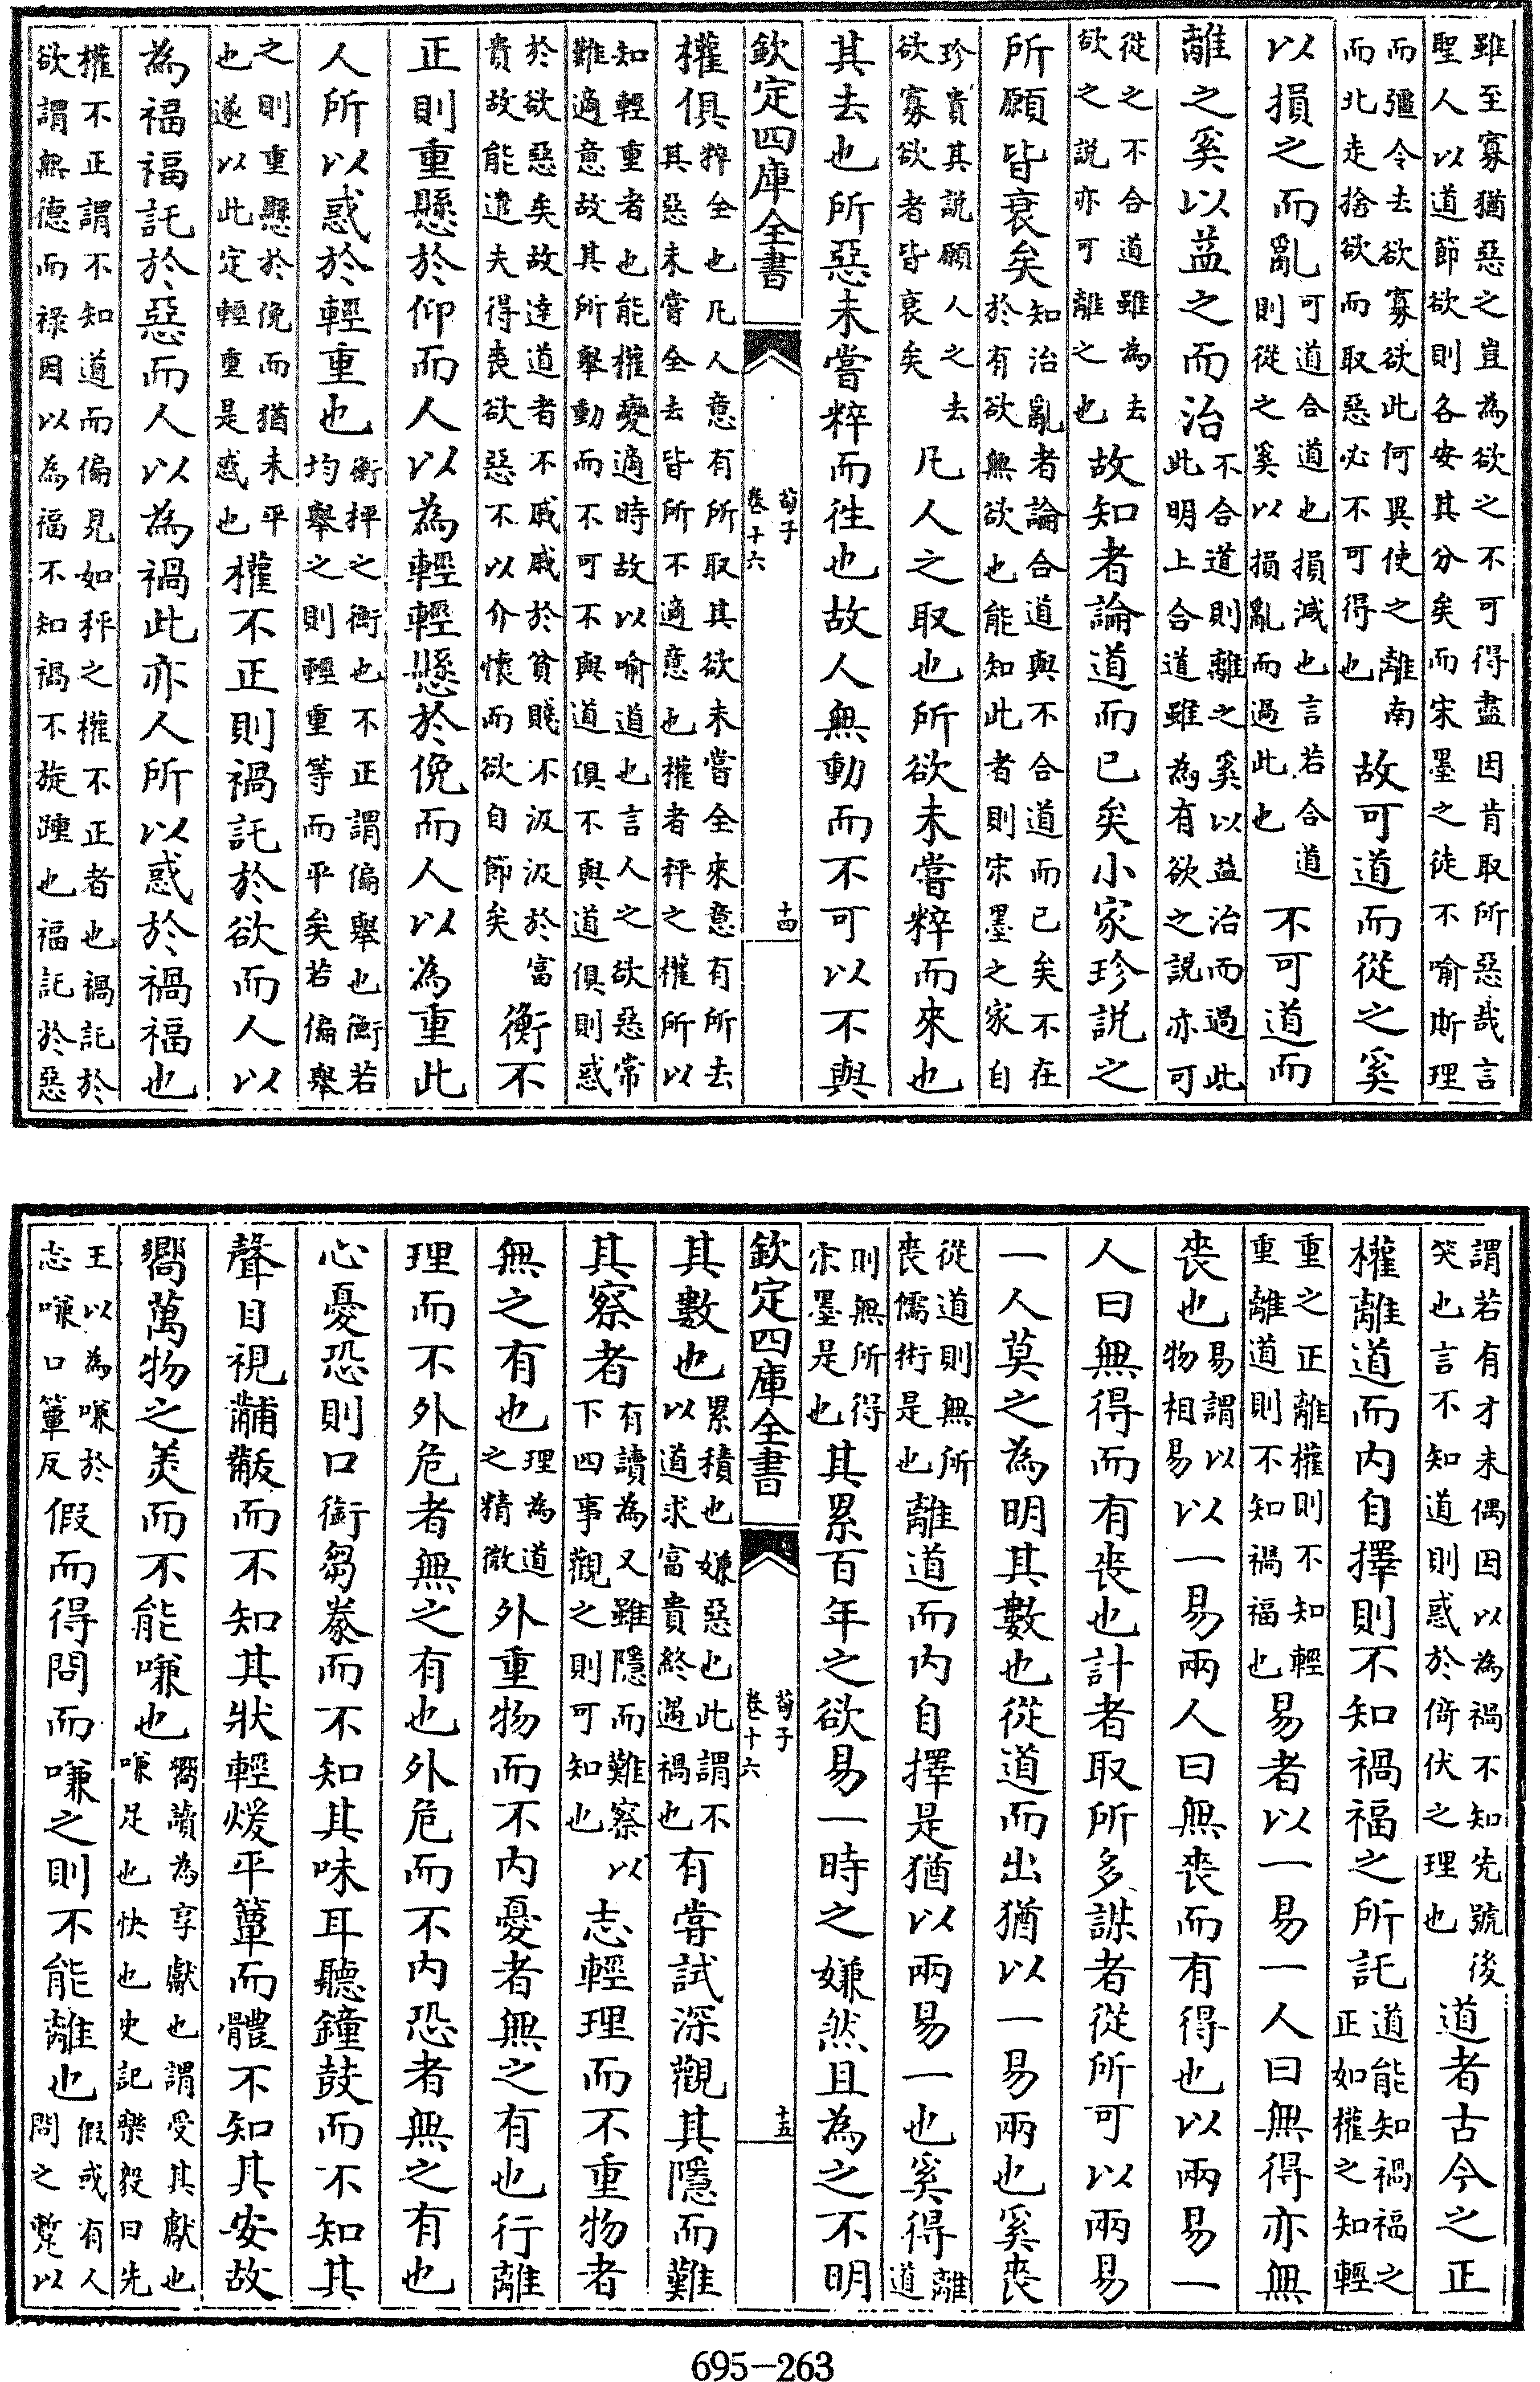 雖至寡猶惡之豈為欲之不可得盡因肯取所惡哉言
聖人以道節欲則各安其分矣而宋墨之徒不喻斯理
而彊令去欲寡欲此何異使之離南而北走捨欲而取惡必不可得也故可道而從之奚
以損之而亂可道合道也損減也言若合道則從之奚以損亂而過此也不可道而
離之奚以益之而治不合道則離之奚以益治而過此此明上合道雖為有欲之說亦可
從之不合道雖為去欲之說亦可離之也故知者論道而已矣小家珍說之
所願皆衰矣知治亂者論合道與不合道而已矣不在於有欲無欲也能知此者則宋墨之家自
珍貴其說願人之去欲寡欲者皆衰矣凡人之取也所欲未嘗粹而來也
其去也所惡未嘗粹而往也故人無動而不可以不與
欽定四庫全書 荀子卷十六 十四
權俱粹全也凡人意有所取其欲未嘗全來意有所去其惡未嘗全去皆所不適意也權者秤之權所以
知輕重者也能權變適時故以喻道也言人之欲惡常難適意故其所舉動而不可不與道俱不與道俱則惑
於欲惡矣故達道者不戚戚於貧賤不汲汲於富貴故能遣夫得喪欲惡不以介懷而欲自節矣衡不
正則重懸於仰而人以為輕輕懸於俛而人以為重此
人所以惑於輕重也衡抨之衡也不正謂偏舉也衡若均舉之則輕重等而平矣若偏舉
之則重懸於俛而猶未平也遂以此定輕重是惑也權不正則禍託於欲而人以
為福福託於惡而人以為禍此亦人所以惑於禍福也
權不正謂不知道而偏見如秤之權不正者也禍託於
欲謂無德而祿因以為福不知禍不旋踵也福託於惡
謂若有才未偶因以為禍不知先號後笑也言不知道則惑於倚伏之理也道者古今之正
權離道而內自擇則不知禍福之所託道能知禍福之正如權之知輕
重之正離權則不知輕重離道則不知禍福也易者以一易一人曰無得亦無
喪也易謂以物相易以一易兩人曰無喪而有得也以兩易一
人曰無得而有喪也計者取所多謀者從所可以兩易
一人莫之為明其數也從道而出猶以一易兩也奚喪
從道則無所喪儒術是也離道而內自擇是猶以兩易一也奚得離道
則無所得宋墨是也其累百年之欲易一時之嫌然且為之不明
欽定四庫全書 荀子卷十六 十五
其數也累積也嫌惡也此謂不以道求富貴終遇禍也有嘗試深觀其隱而難
其察者有讀為又雖隱而難察以下四事觀之則可知也志輕理而不重物者
無之有也理為道之精微外重物而不內憂者無之有也行離
理而不外危者無之有也外危而不內恐者無之有也
心憂恐則口銜芻豢而不知其味耳聽鐘鼓而不知其
聲目視黼黻而不知其狀輕煖平簟而體不知其安故
嚮萬物之美而不能嗛也嚮讀為享獻也謂受其獻也嗛足也快也史記樂毅曰先
王以為嗛於志嗛口簟反假而得問而嗛之則不能離也假或有人問之蹔以
695-263